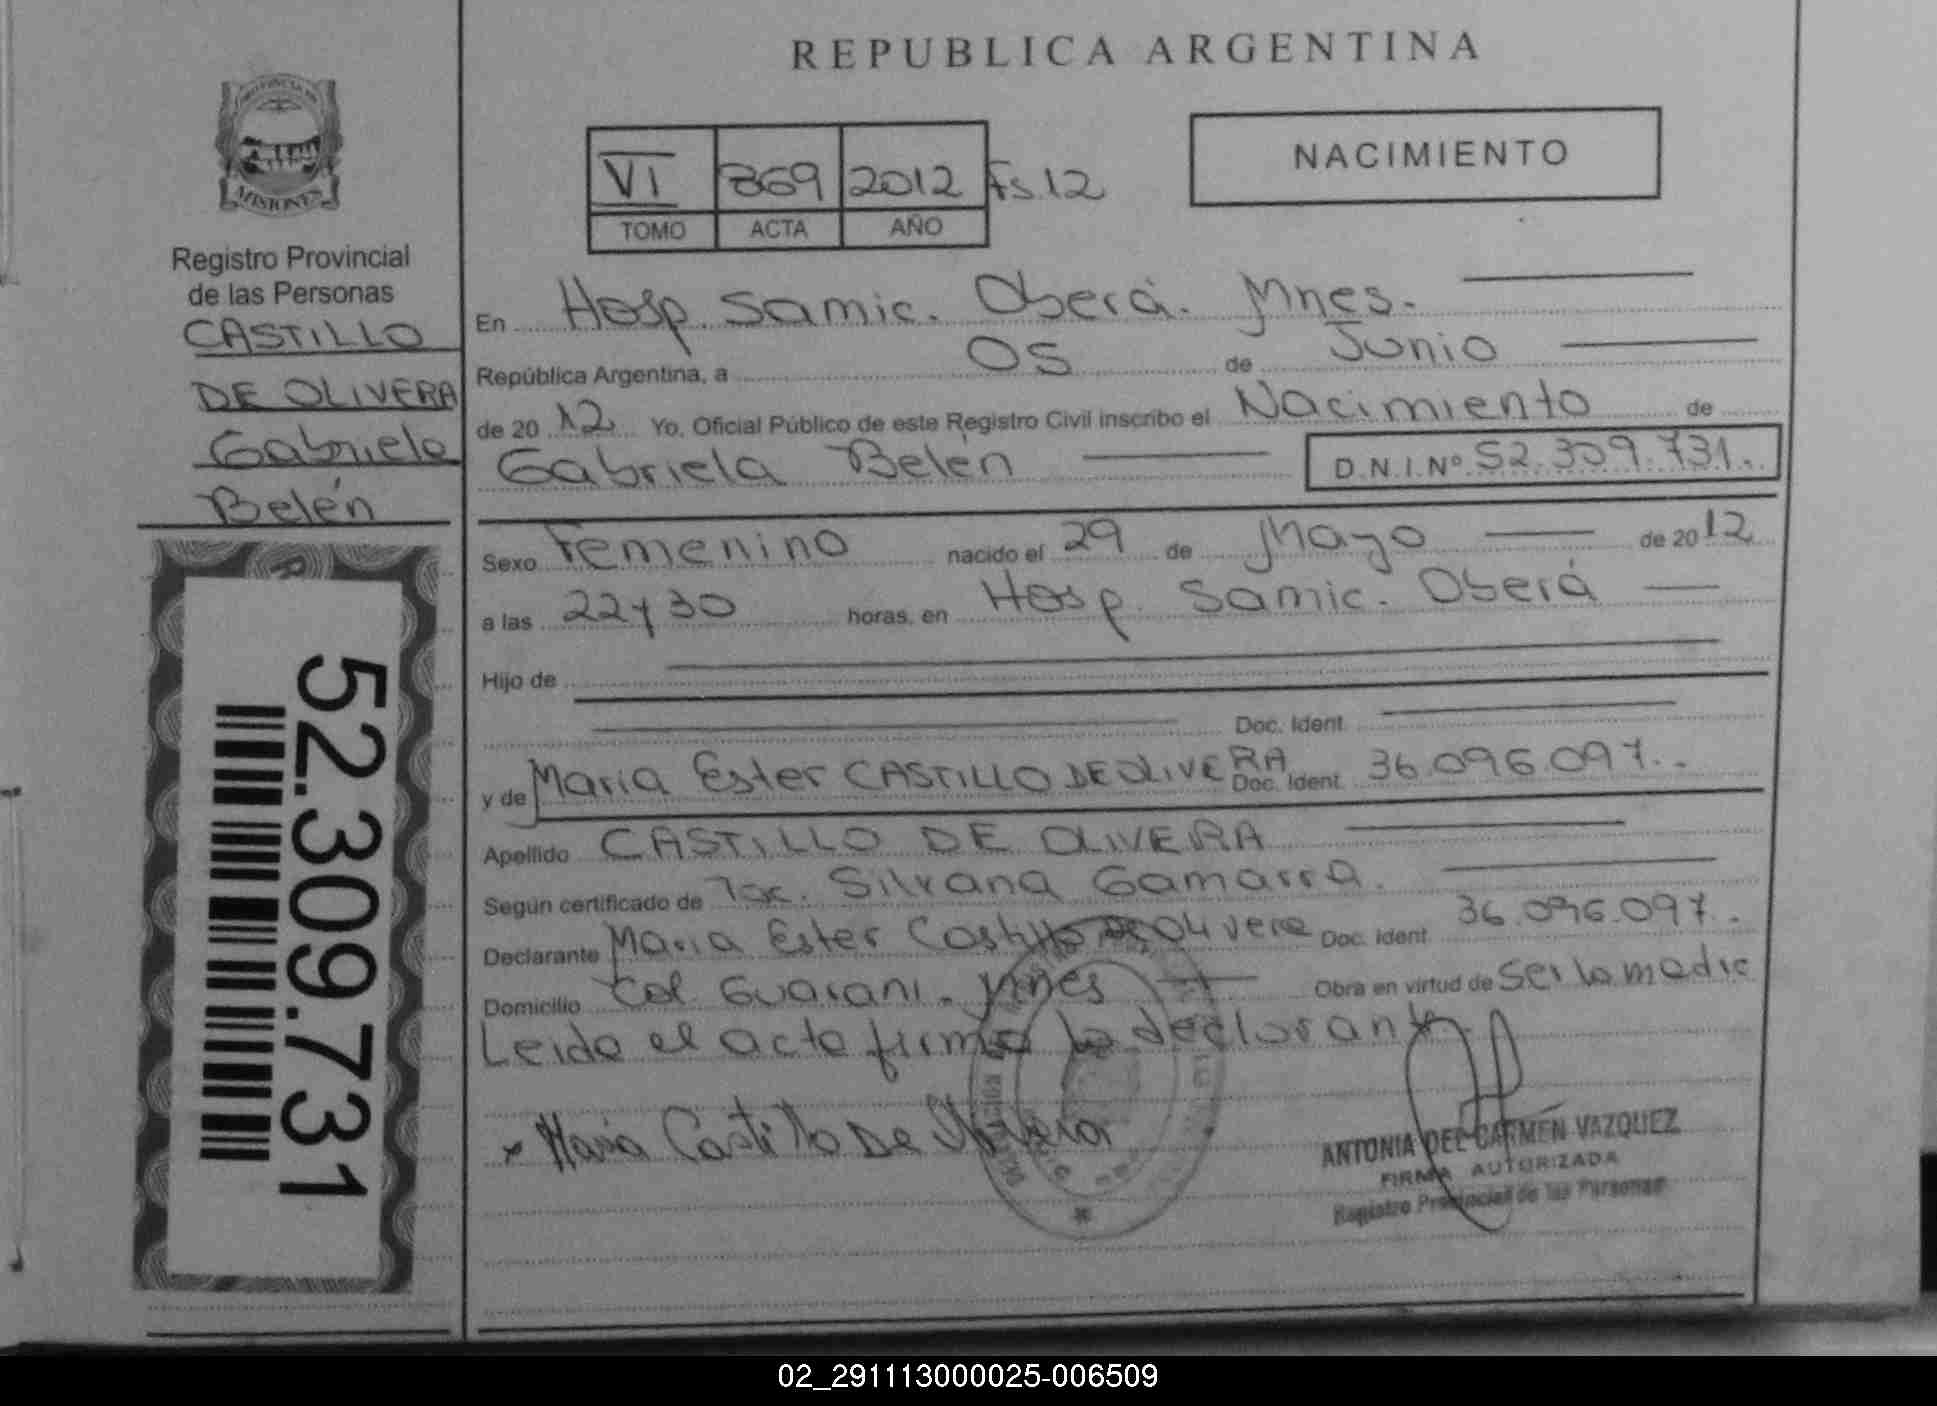 REPUBLICA ARGENTINA
NACIMIENTO
VI 869 2012 Fs.12
TOMO ACTA AÑO
PROVINCIA DE
MISIONES
Registro Provincial
de las Personas
CASTILLO
DE OLIVERA
Gabriela
Belén
52.309.731
En Hosp. Samic. Oberá. Mnes.
República Argentina, a 05 de Junio
de 20 12 Yo, Oficial Público de este Registro Civil inscribo el Nacimiento de
Gabriela Belén D.N.I.Nº 52.309.731.
Sexo Femenino nacido el 29 de Mayo de 2012
a las 22y30 horas, en Hosp. Samic. Oberá
Hijo de
Doc. Ident.
y de Maria Ester CASTILLO DE OLIVERA Doc. Ident. 36.096.097..
Apellido CASTILLO DE OLIVERA
Según certificado de Toc. Silvana Gamarra.
Declarante Maria Ester Castillo De Olivera Doc. Ident. 36.096.097.
Domicilio Col Guarani. Mnes Obra en virtud de Ser la madre
Leida el acta firma la declarante.
x Maria Castillo De Olivera
ANTONIA DEL CARMEN VAZQUEZ
FIRMA AUTORIZADA
Registro Provincial de las Personas
02_291113000025-006509